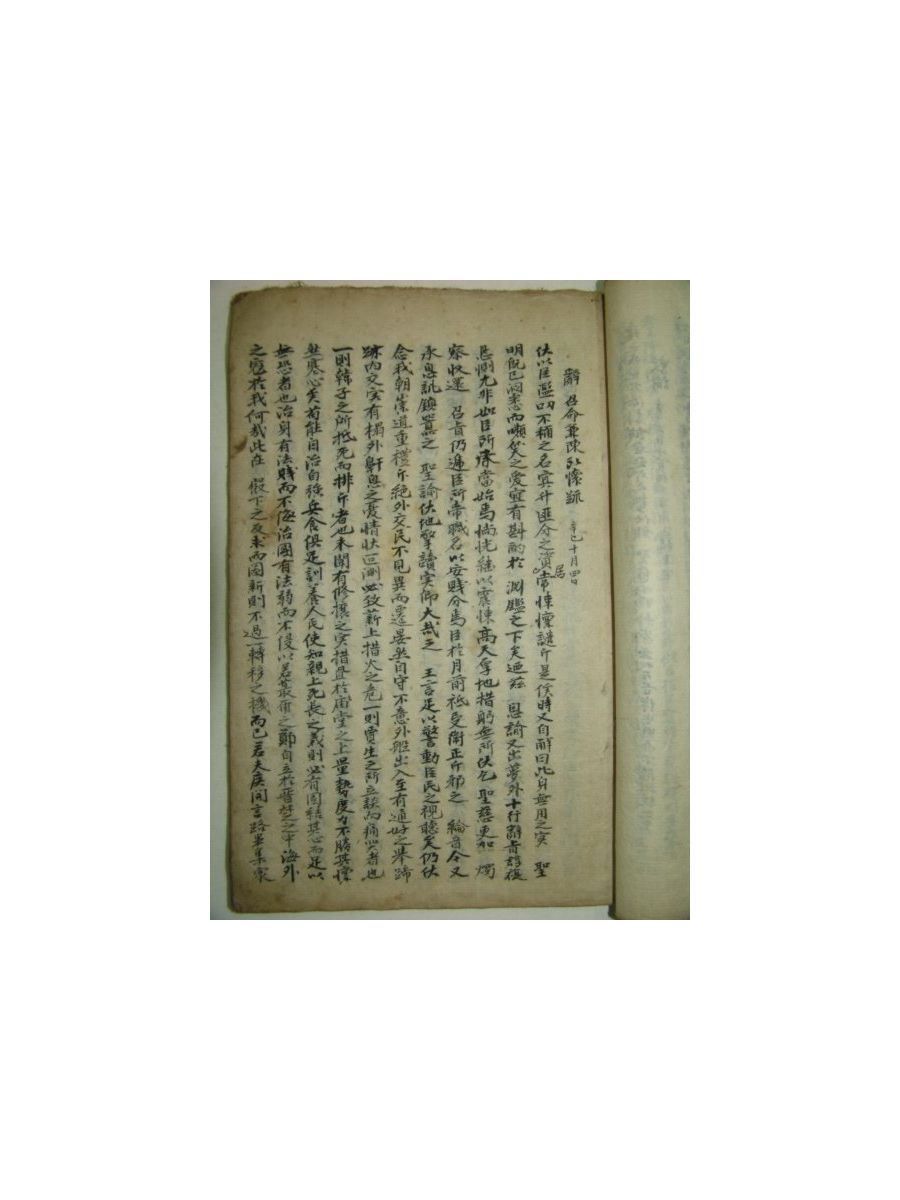 辭 召命兼陳所懷疏 辛巳十月四日
伏以臣濫叨不稱之名冥升匪分之資居常悚懍譴斥是俟時又自解曰此身無用之實 聖
明旣已洞悉而嚬笑之愛宜有斟酌於 淵鑑之下矣迺玆 恩諭又出夢外十行辭旨諄複
懇惻尤非如臣所堪當始焉惝恍繼以震悚高天厚地措躬無所伏乞 聖慈更加 燭
察收還 召旨仍遞臣所帶職名以安賤分焉臣於月前祗受衛正斥邪之 綸音今又
承息訛鎭囂之 聖諭伏地擎讀實仰大哉之 王言足以警動臣民之視聽矣仍伏
念我朝崇道重禮斥絶外交民不見異而遷晏然自守不意外船出入至有通好之擧蹄
跡內交實有榻外鼾息之憂情狀叵測必致薪上措火之危一則賈生之所立談而痛哭者也
一則韓子之所抵死而排斥者也未聞有修攘之實措畫於廟堂之上量勢度力不勝其懍
然寒心矣苟能自治自强兵食俱足訓養人民使知親上死長之義則必有固結其心而足以
無恐者也治身有法賤而不侮治國有法弱而不侵以若蕞爾之鄭自立於晉楚之中海外
之寇於我何哉此在 殿下之反求而圖新則不過一轉移之機而已若夫廣開言路畢集衆